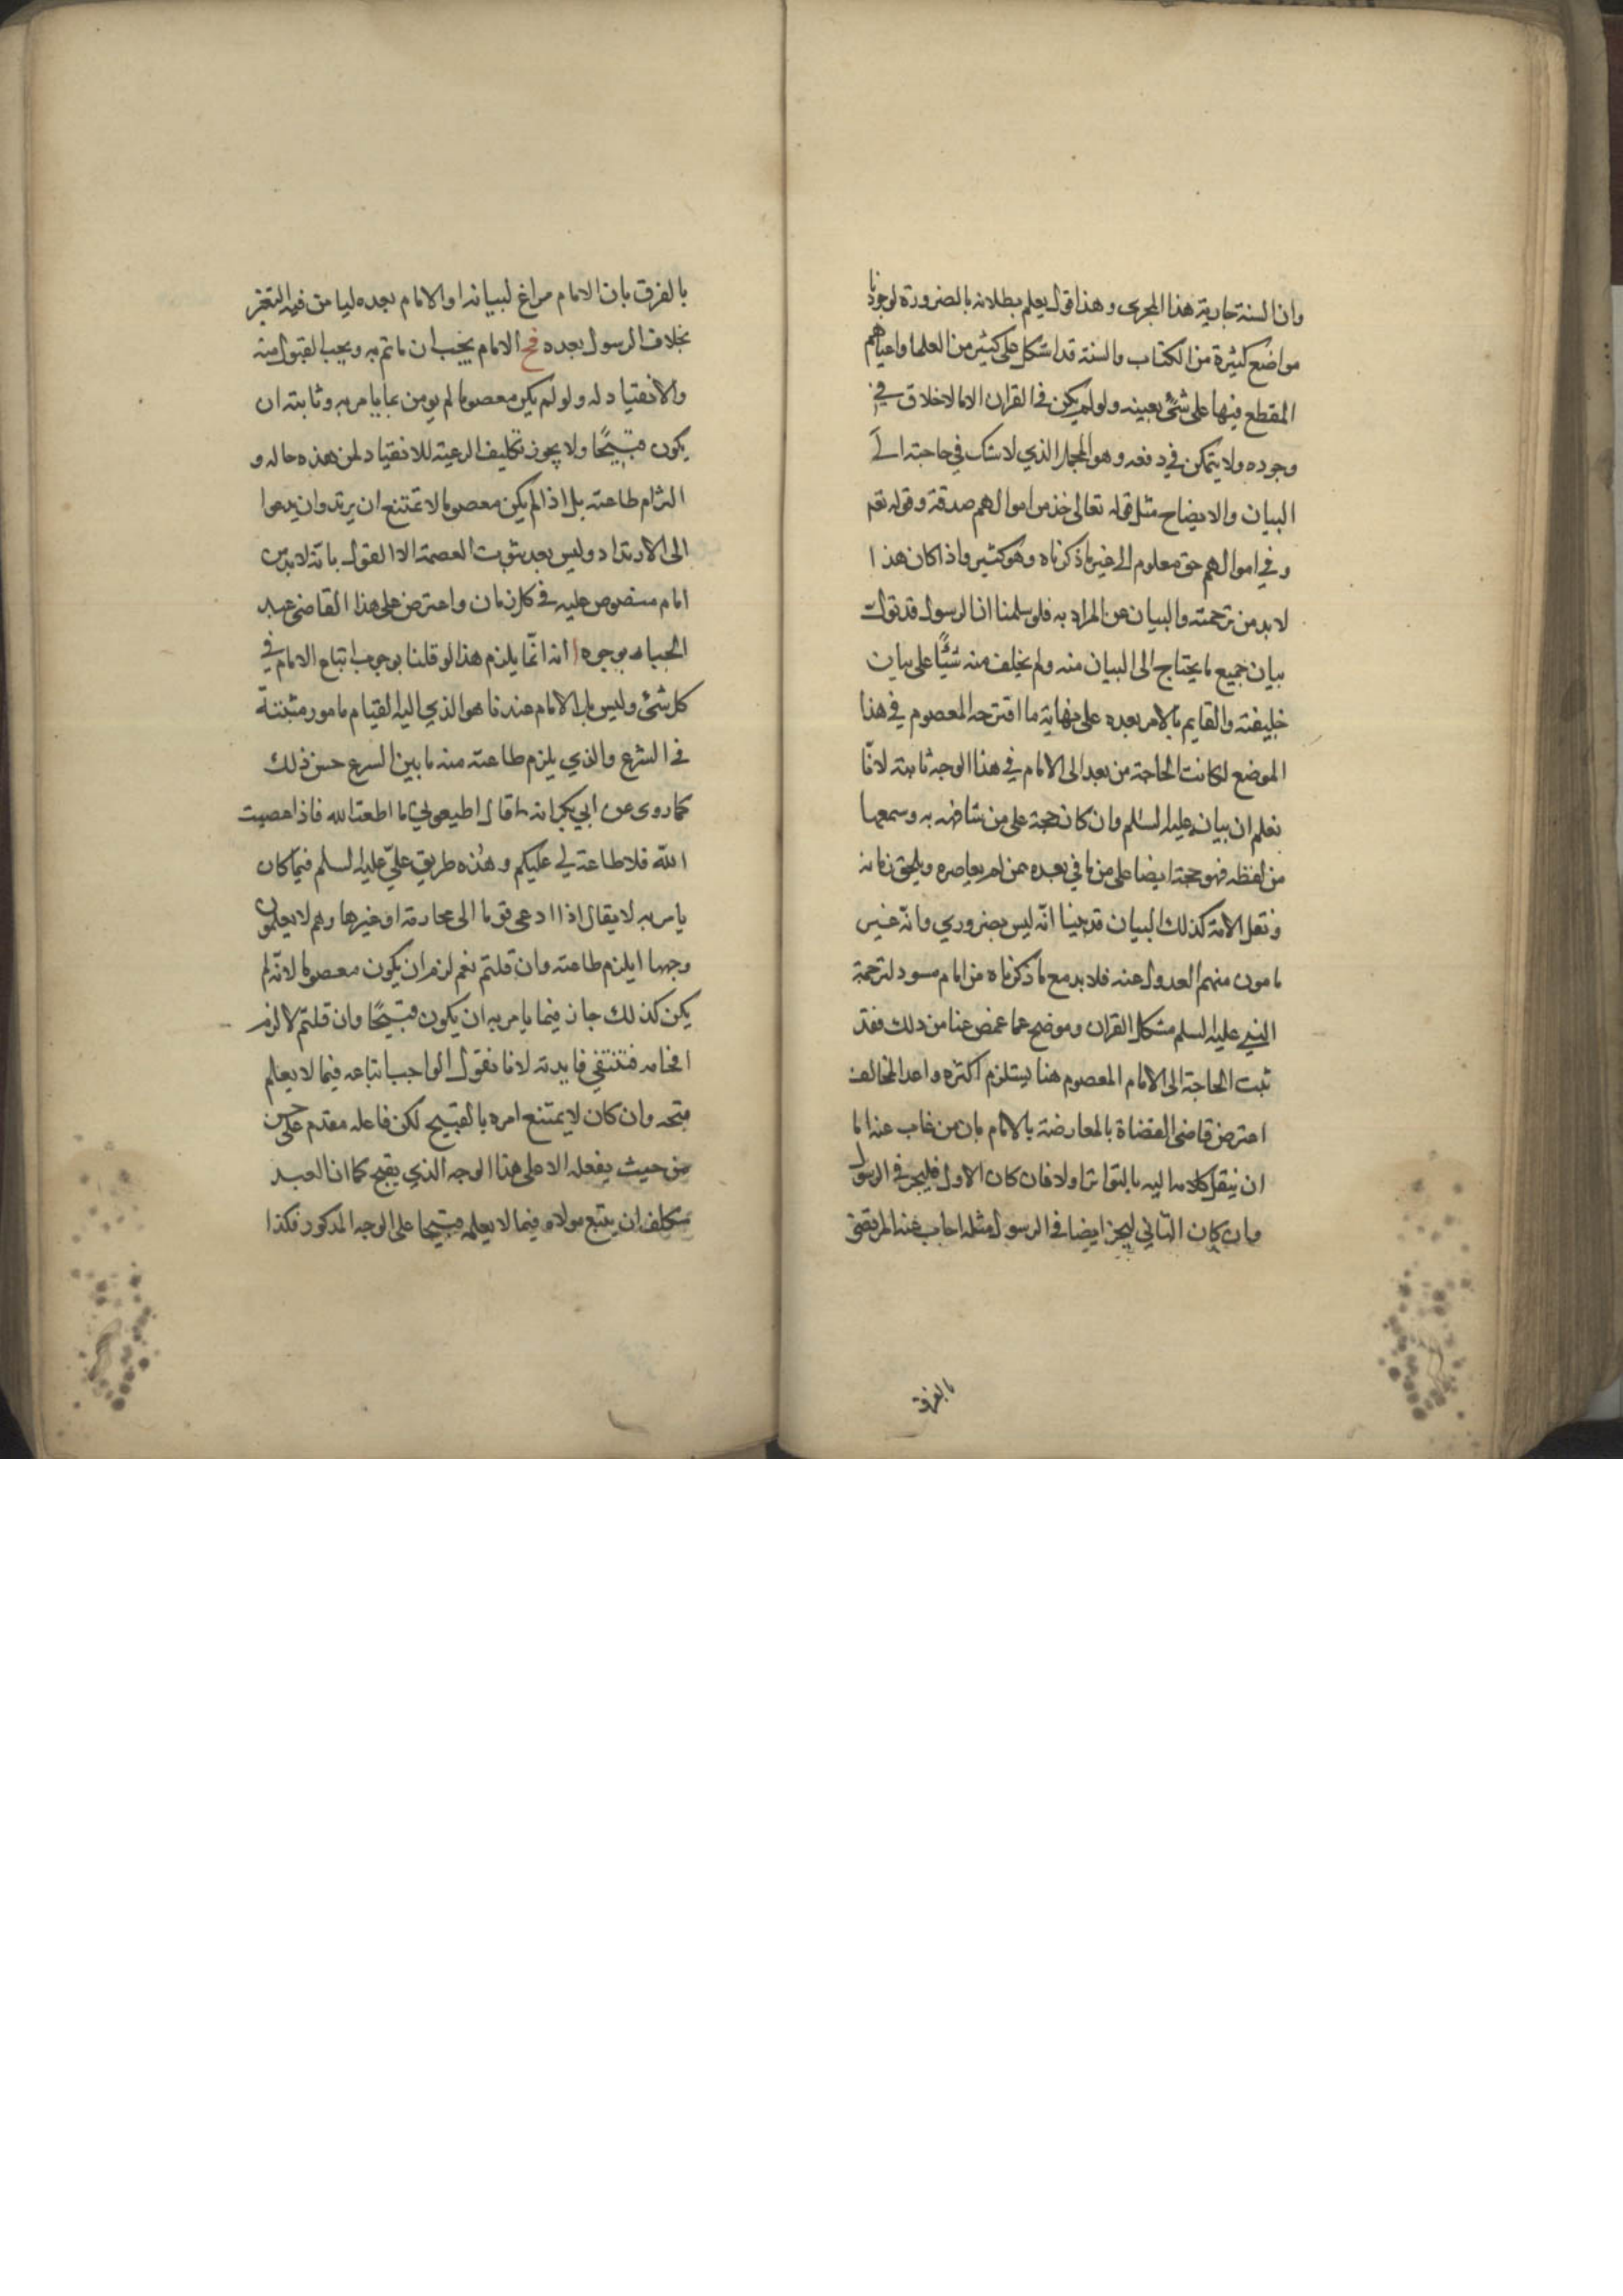 وان السنة جارية هذا المجرى وهذا قول يعلم بطلانه بالضرورة لوجودنا
مواضع كثيرة من الكتاب والسنة قد اشكل على كثير من العلما واعياهم
القطع فيها على شئ بعينه ولو لم يكن في القران الا ما لا خلاف في
وجوده ولا يتمكن في دفعه وهو المجمل الذي لا شك في حاجته الى
البيان والايضاح مثل قوله تعالى خذ من اموالهم صدقة وقوله تعم
وفي اموالهم حق معلوم الى غير ما ذكرناه وهو كثير واذا كان هذا
لا بد من ترجمته والبيان عن المراد به فلو سلمنا ان الرسول قد تولى
بيان جميع ما يحتاج الى البيان منه ولم يخلف منه شيئًا على بيان
خليفته والقايم بالامر بعده على نهاية ما اقترحه المعصوم في هذا
الموضع لكانت الحاجة من بعد الى الامام في هذا الوجه ثابتة لانّا
نعلم ان بيانه عليه السلم وان كان حجة على من شافهه به وسمعها
من لفظه فهو حجة ايضا على من ياتي بعده ممن لم يعاصره ويلحق زمانه
ونقل الامة كذلك البيان قد بينا انّه ليس بضروري وانّه غير
مامون منهم العدول عنه فلا بد مع ما ذكرناه من امام مسود لترجمة
النبي عليه السلم مشكل القران وموضح عما غمض عنا من ذلك فقد
ثبت الحاجة الى الامام المعصوم هنا يستلزم اكثره واعد المخالف
اعترض قاضى القضاة بالمعارضة بالامام بان من غاب عنه اما
ان ينقل كلامه اليه بالتواتر اولا فان كان الاول فليجز في الرسول
وان كان الثاني ليجز ايضا في الرسول مثله اجاب عنه المرتضى
بالفرق
بالفرق بان الامام مراغ لبيانه او الامام بعده ليامن فيه التغير
بخلاف الرسول بعده فح الامام يجب ان ياتم به ويجب القبول منه
والانقياد له ولو لم يكن معصوما لم يومن عما يامر به وثابته ان
يكون قبيحًا ولا يجوز تكليف الرعية للانقياد لمن هذه حاله و
التزام طاعته بل اذا لم يكن معصوما لا تمتنع ان يرتد وان يدعوا
الى الارتداد وليس بعد ثبوت العصمة الا القول بانّه لا بد من
امام منصوص عليه في كل زمان واعترض على هذا القاضى عبد
الجبار بوجوه ا انه انّما يلزم هذا لو قلنا بوجوب اتباع الامام في
كل شئ وليس بل الامام عندنا هو الذي اليه القيام بامور مثبتة
في الشرع والذي يلزم طاعته منه ما بين الشرع حسن ذلك
كما روى عن ابي بكر انه قال اطيعوني ما اطعت الله فاذا عصيت
اللّه فلا طاعة لي عليكم وهذه طريق عليّ عليه السلم فيما كان
يامر به لا يقال اذا ادعى قوما الى محاربة او غيرها وهم لا يعلمون
وجهها ايلزم طاعته وان قلتم نعم لزم ان يكون معصوما لانّه لم
يكن كذلك جاز فيما يامر به ان يكون قبيحًا وان قلتم لا لزم
افحامه فتنتفي فايدته لانا نقول الواجب اتباعه فيما لا يعلم
قبحه وان كان لا يمتنع امره بالقبيح لكن فاعله مقدم على حسن
من حيث يفعله الا على هذا الوجه الذي يقبح كما ان العبد
متكلف ان يتبع مولاه فيما لا يعلمه قبيحا على الوجه المذكور فكذا